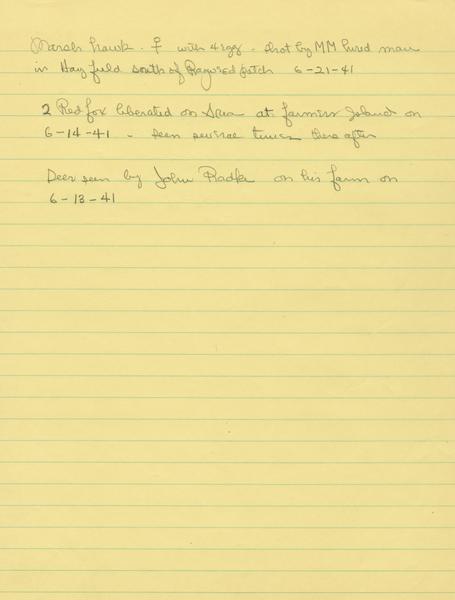 Marsh hawk. ♀ with 4 egg - shot by MM hired man
in Hay field south of Ragweed patch 6-21-41
2 Red fox liberated on Area at farmers Island on
6-14-41 - seen several times there after
Deer seen by John Radke on his farm on
6-13-41